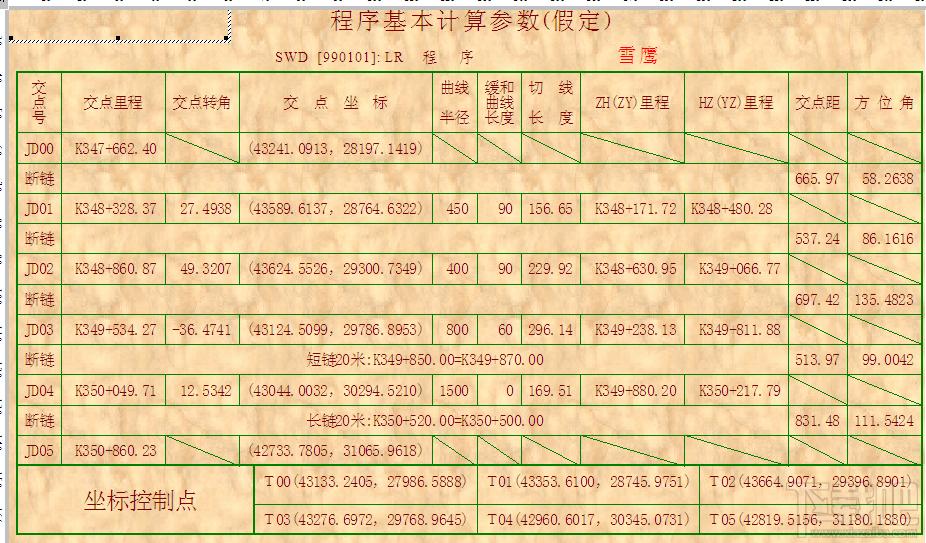 程序基本计算参数(假定)
SWD [990101]:LR 程 序 雪鹰
交点号 交点里程 交点转角 交 点 坐 标 曲线半径 缓和曲线长度 切 线 长 度 ZH(ZY)里程 HZ(YZ)里程 交点距 方 位 角
JD00 K347+662.40 (43241.0913, 28197.1419)
断链 665.97 58.2638
JD01 K348+328.37 27.4938 (43589.6137, 28764.6322) 450 90 156.65 K348+171.72 K348+480.28
断链 537.24 86.1616
JD02 K348+860.87 49.3207 (43624.5526, 29300.7349) 400 90 229.92 K348+630.95 K349+066.77
断链 697.42 135.4823
JD03 K349+534.27 -36.4741 (43124.5099, 29786.8953) 800 60 296.14 K349+238.13 K349+811.88
断链 短链20米:K349+850.00=K349+870.00 513.97 99.0042
JD04 K350+049.71 12.5342 (43044.0032, 30294.5210) 1500 0 169.51 K349+880.20 K350+217.79
断链 长链20米:K350+520.00=K350+500.00 831.48 111.5424
JD05 K350+860.23 (42733.7805, 31065.9618)
坐标控制点
T00(43133.2405, 27986.5838) T01(43353.6100, 28745.9751) T02(43664.9071, 29396.8901)
T03(43276.6972, 29768.9645) T04(42960.6017, 30345.0731) T05(42819.5156, 31180.1830)